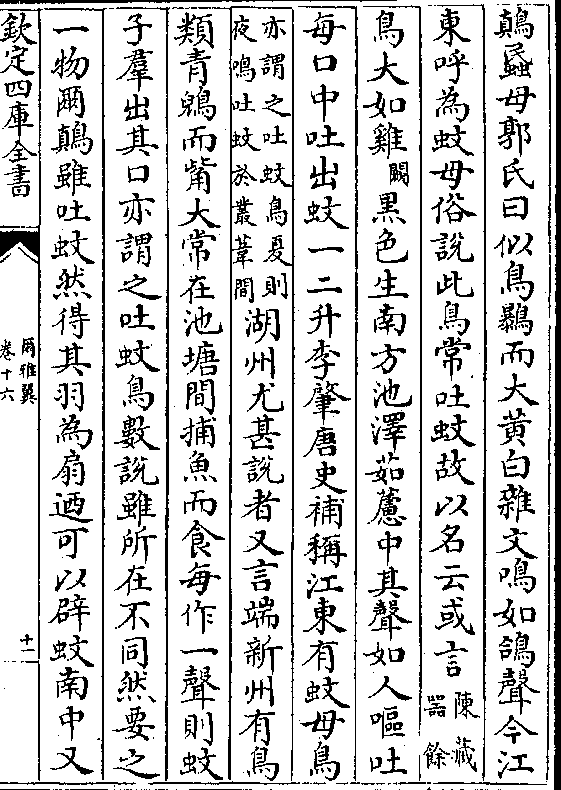 鷏蟁母郭氏曰似鳥鸔而大黄白雜文鳴如鴿聲今江
東呼為蚊母俗說此鳥常吐蚊故以名云或言陳藏器餘
鳥大如雞闕黑色生南方池澤茹藘中其聲如人嘔吐
每口中吐出蚊一二升李肇唐史補稱江東有蚊母鳥
亦謂之吐蚊鳥夏則夜鳴吐蚊於叢葦間湖州尤甚說者又言端新州有鳥
類青鶂而觜大常在池塘間捕魚而食每作一聲則蚊
子羣出其口亦謂之吐蚊鳥數說雖所在不同然要之
一物爾鷏雖吐蚊然得其羽為扇迺可以辟蚊南中又
欽定四庫全書
爾雅翼
卷十六
十一